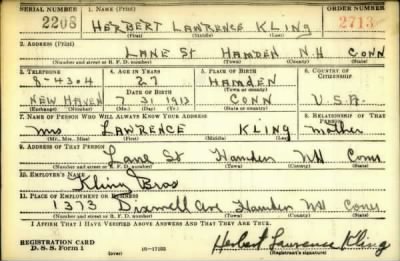 SERIAL NUMBER 1. NAME (Print) ORDER NUMBER
2208 HERBERT LAWRENCE KLING 2713
(First) (Middle) (Last)
2. ADDRESS (Print)
LANE St HAMDEN N.H CONN
(Number and street or R. F. D. number) (Town) (County) (State)
3. TELEPHONE 4. AGE IN YEARS 5. PLACE OF BIRTH 6. COUNTRY OF CITIZENSHIP
8-4304 27 HAMDEN
DATE OF BIRTH (Town or county)
NEW HAVEN 7-31-1913 CONN U.S.A.
(Exchange) (Number) (Mo.) (Day) (Yr.) (State or country)
7. NAME OF PERSON WHO WILL ALWAYS KNOW YOUR ADDRESS 8. RELATIONSHIP OF THAT PERSON
Mrs LAWRENCE KLING Mother
(Mr., Mrs., Miss) (First) (Middle) (Last)
9. ADDRESS OF THAT PERSON
Lane St Hamden NH Conn
(Number and street or R. F. D. number) (Town) (County) (State)
10. EMPLOYER'S NAME
Kling Bros
11. PLACE OF EMPLOYMENT OR BUSINESS
1373 Dixwell Ave Hamden NH Conn
(Number and street or R. F. D. number) (Town) (County) (State)
I AFFIRM THAT I HAVE VERIFIED ABOVE ANSWERS AND THAT THEY ARE TRUE.
REGISTRATION CARD
D. S. S. Form 1 (over) Herbert Lawrence Kling
(Registrant's signature)